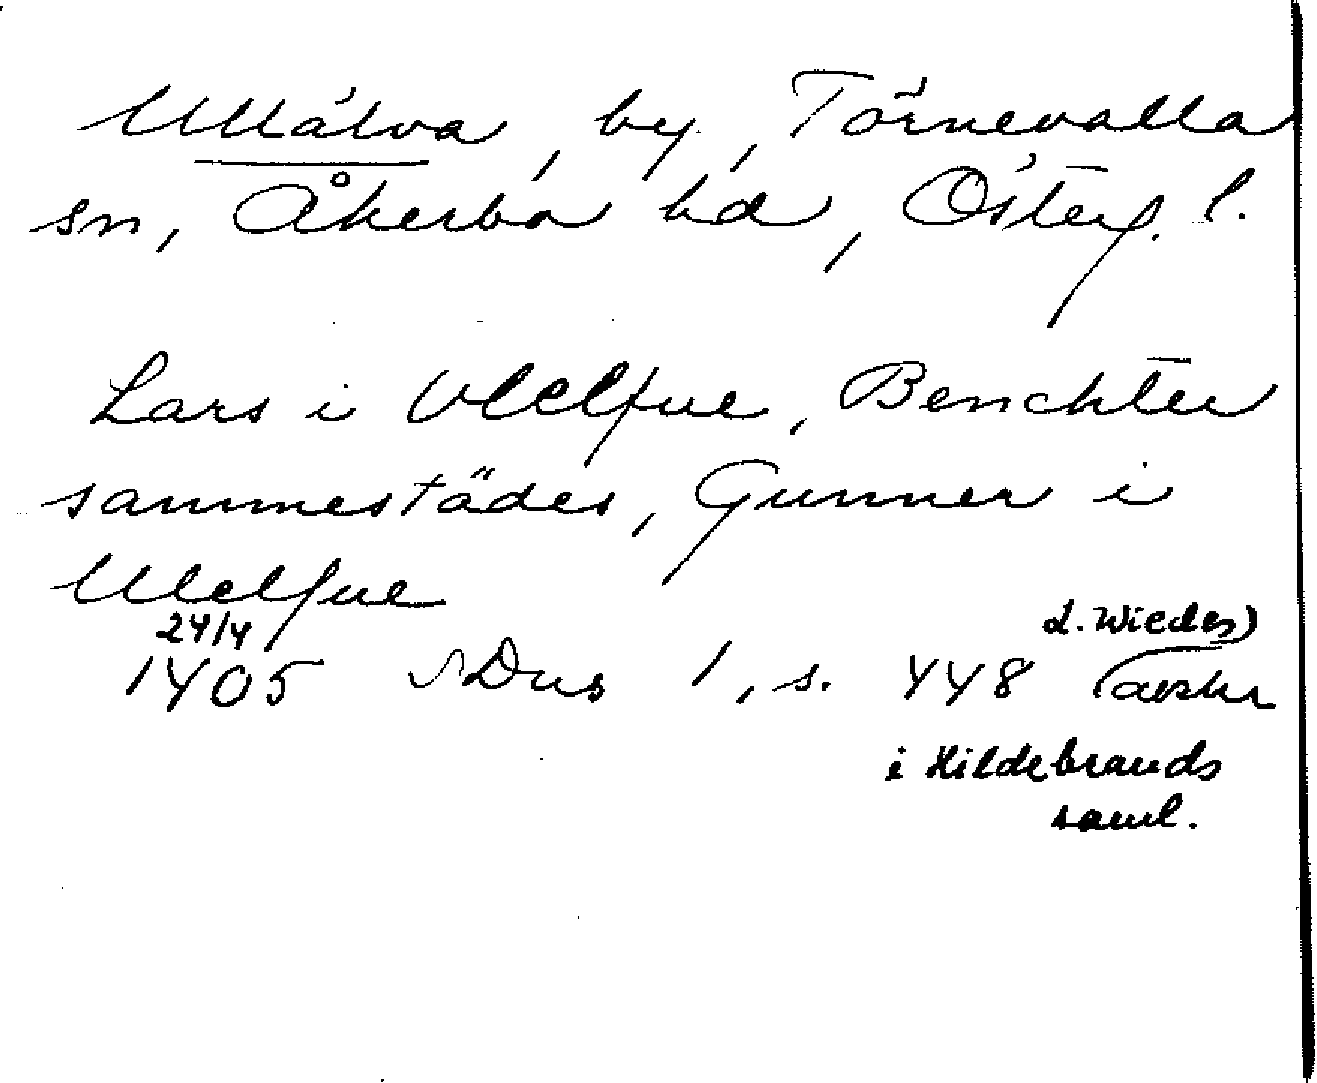 Ullälva, by, Törnevalla
sn, Åkerbo hd, Österg. l.
Lars i Vlelfue, Benchter
sammestädes, Gunner i
Vlelfue
24/4 d. Wiedes)
1405 SDns 1, s. 448 (avskr
i Hildebrands
saml.